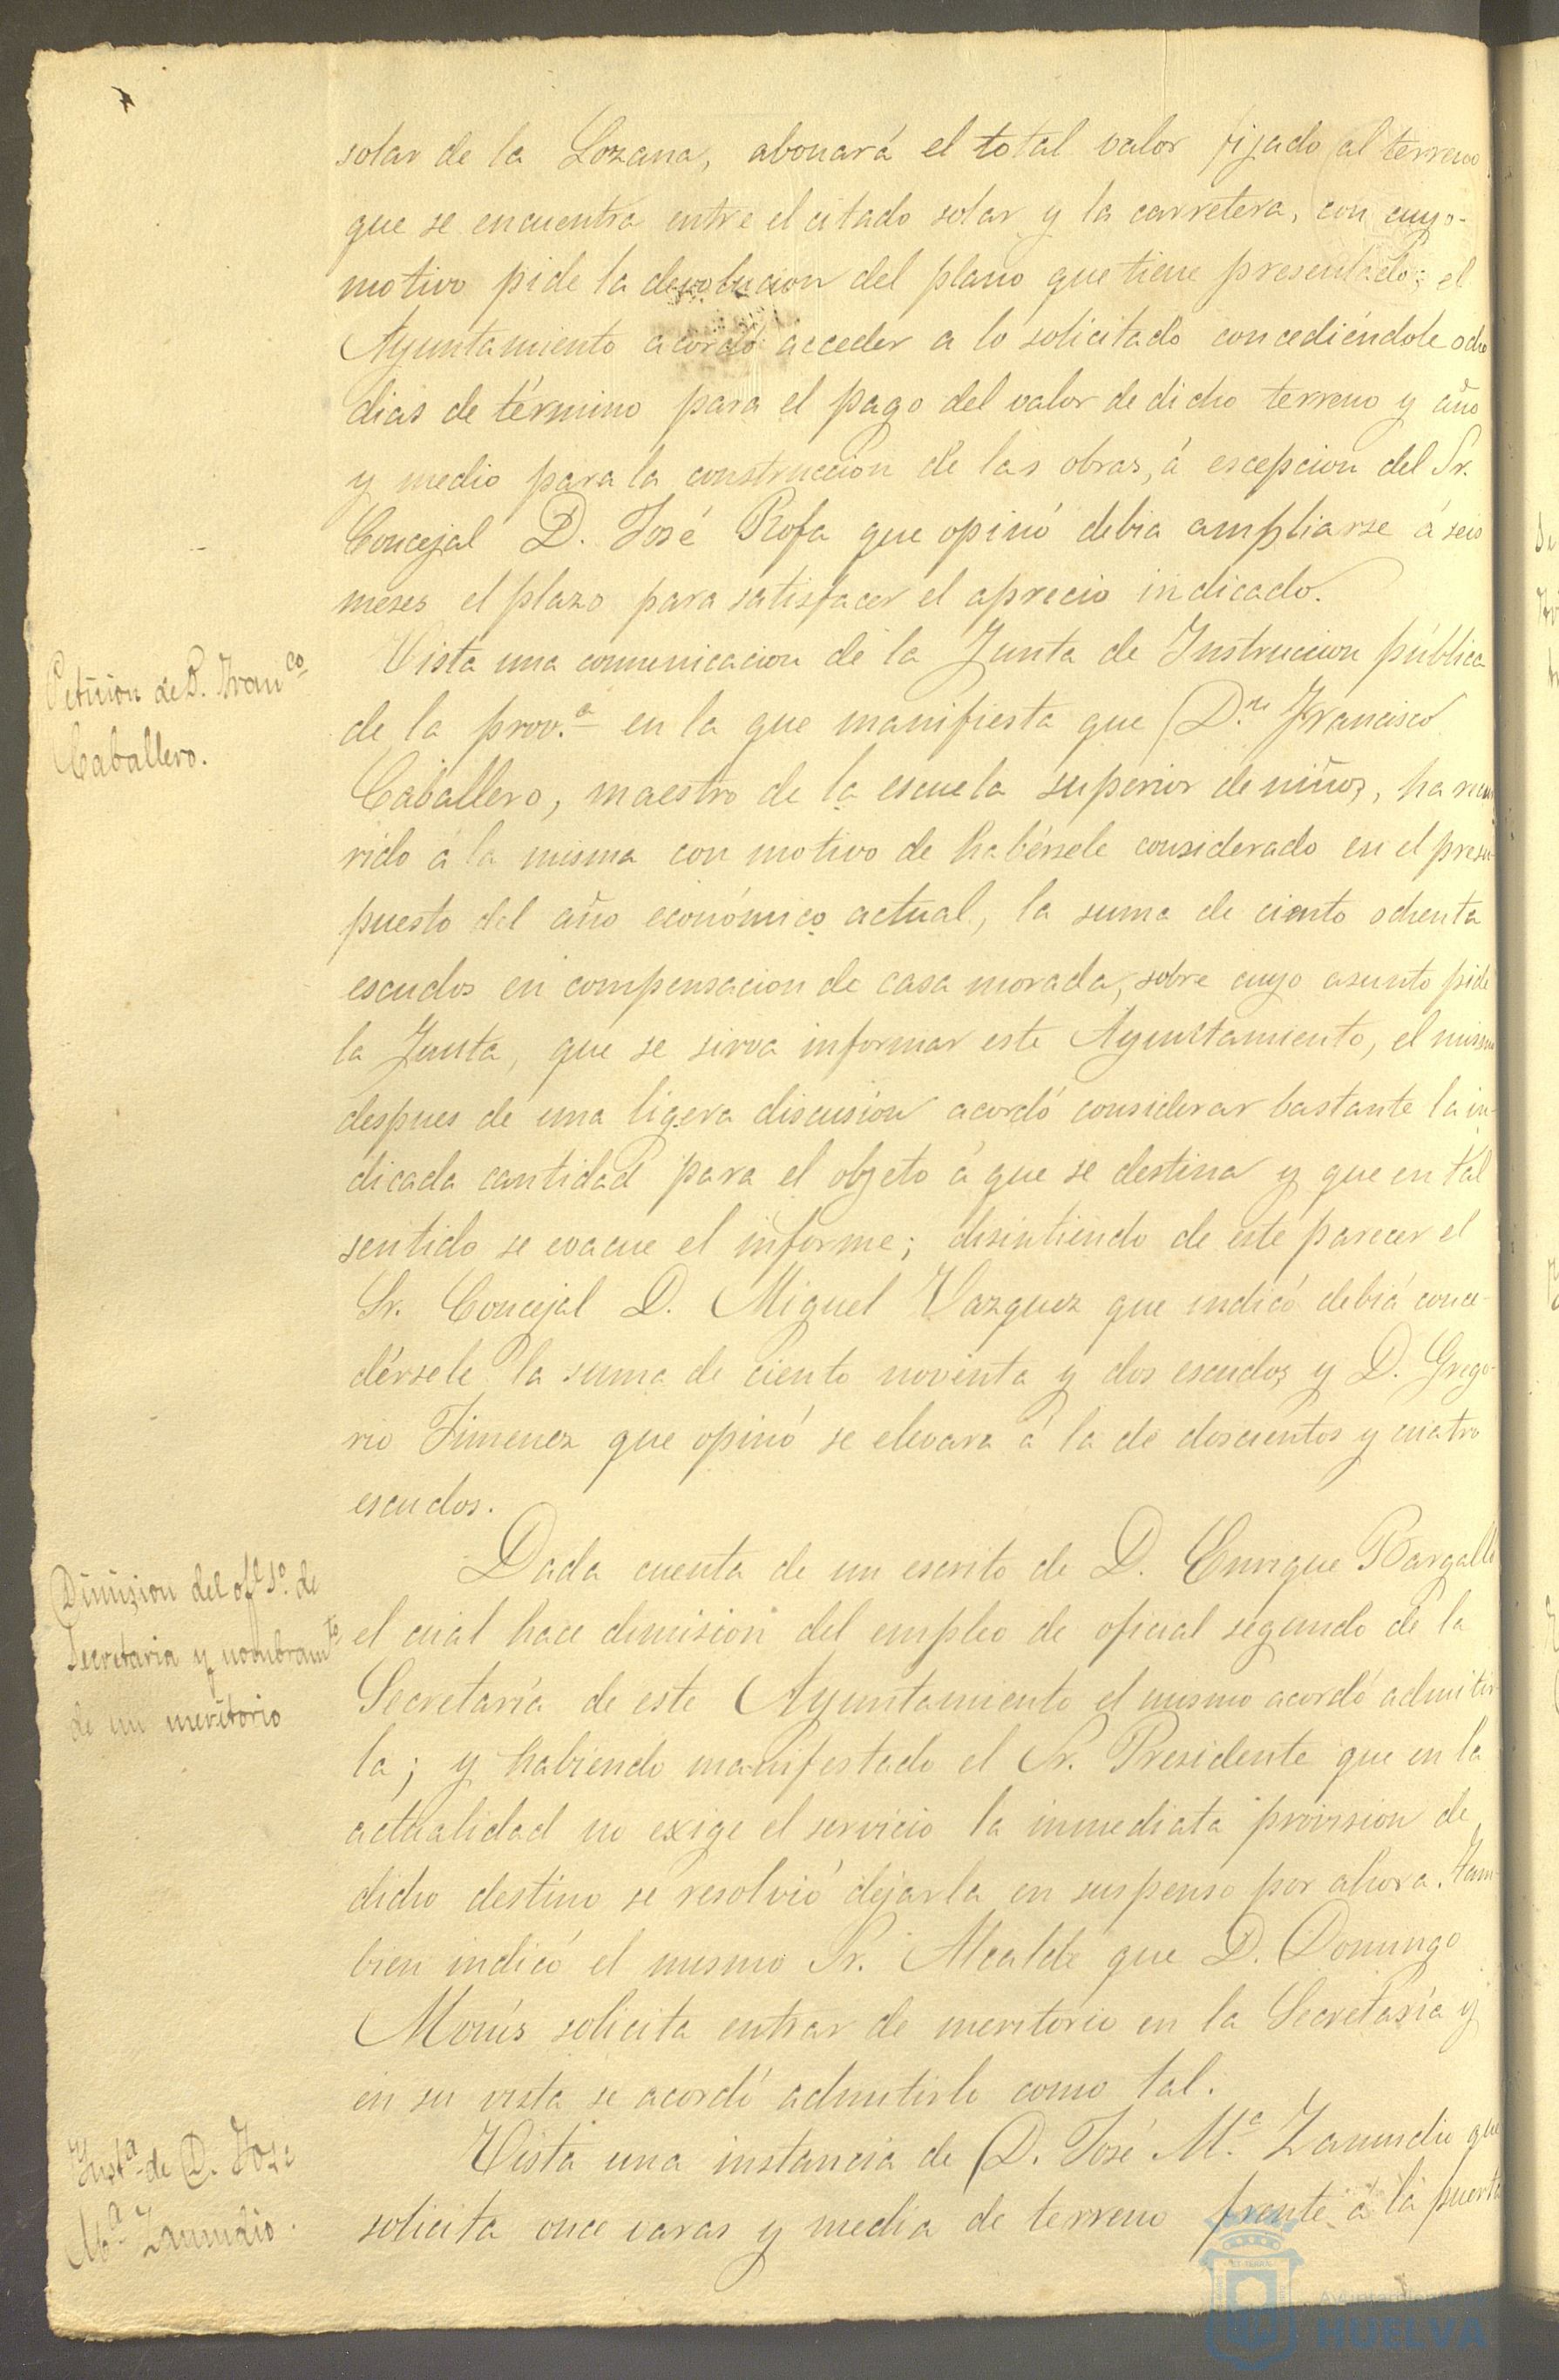 solar de la Lozana, abonará el total valor fijado al terreno
que se encuentra entre el citado solar y la carretera, con cuyo
motivo pide la devolucion del plano que tiene presentado; el
Ayuntamiento acordó acceder a lo solicitado concediéndole ocho
dias de término para el pago del valor de dicho terreno y año
y medio para la construccion de las obras, á escepcion del Sr.
Concejal D. José Rofa que opinó debia ampliarse á seis
meses el plazo para satisfacer el aprecio indicado.
Peticion de D. Franco
Caballero.
Vista una comunicacion de la Junta de Instruccion pública
de la prov.a en la que manifiesta que D.n Francisco
Caballero, maestro de la escuela superior de niños, ha recur
rido á la misma con motivo de habérsele considerado en el presu
puesto del año económico actual, la suma de ciento ochenta
escudos en compensacion de casa morada, sobre cuyo asunto pide
la Junta, que se sirva informar este Ayuntamiento, el mismo
despues de una ligera discusion acordó considerar bastante la in-
dicada cantidad para el objeto á que se destina y que en tál
sentido se evacue el informe; disintiendo de este parecer el
Sr. Concejal D. Miguel Vazquez que indicó debiá conce-
dérsele la suma de ciento noventa y dos escudos y D. Grego-
rio Jimenez que opinó se elevara á la de doscientos y cuatro
escudos.
Dimision del ofl. 2o. de
Secretaria y nombramto
de un meritorio
Dada cuenta de un escrito de D. Enrique Bargalló
el cual hace dimision del empleo de oficial segundo de la
Secretaría de este Ayuntamiento el mismo acordó admitir
la; y habiendo manifestado el Sr. Presidente que en la
actualidad no exige el servicio la inmediata provision de
dicho destino se resolvió dejarla en suspenso por ahora. Tam-
bien indicó el mismo Sr. Alcalde que D. Domingo
solicita entrar de meritorio en la Secretaría y
en su vista se acordó admitirlo como tal.
Insta. de D. José
Ma. Zamudio.
Vista una instancia de D. José M.a Zamudio que
solicita once varas y media de terreno frente á la puerta
Ayuntamiento de
HUELVA